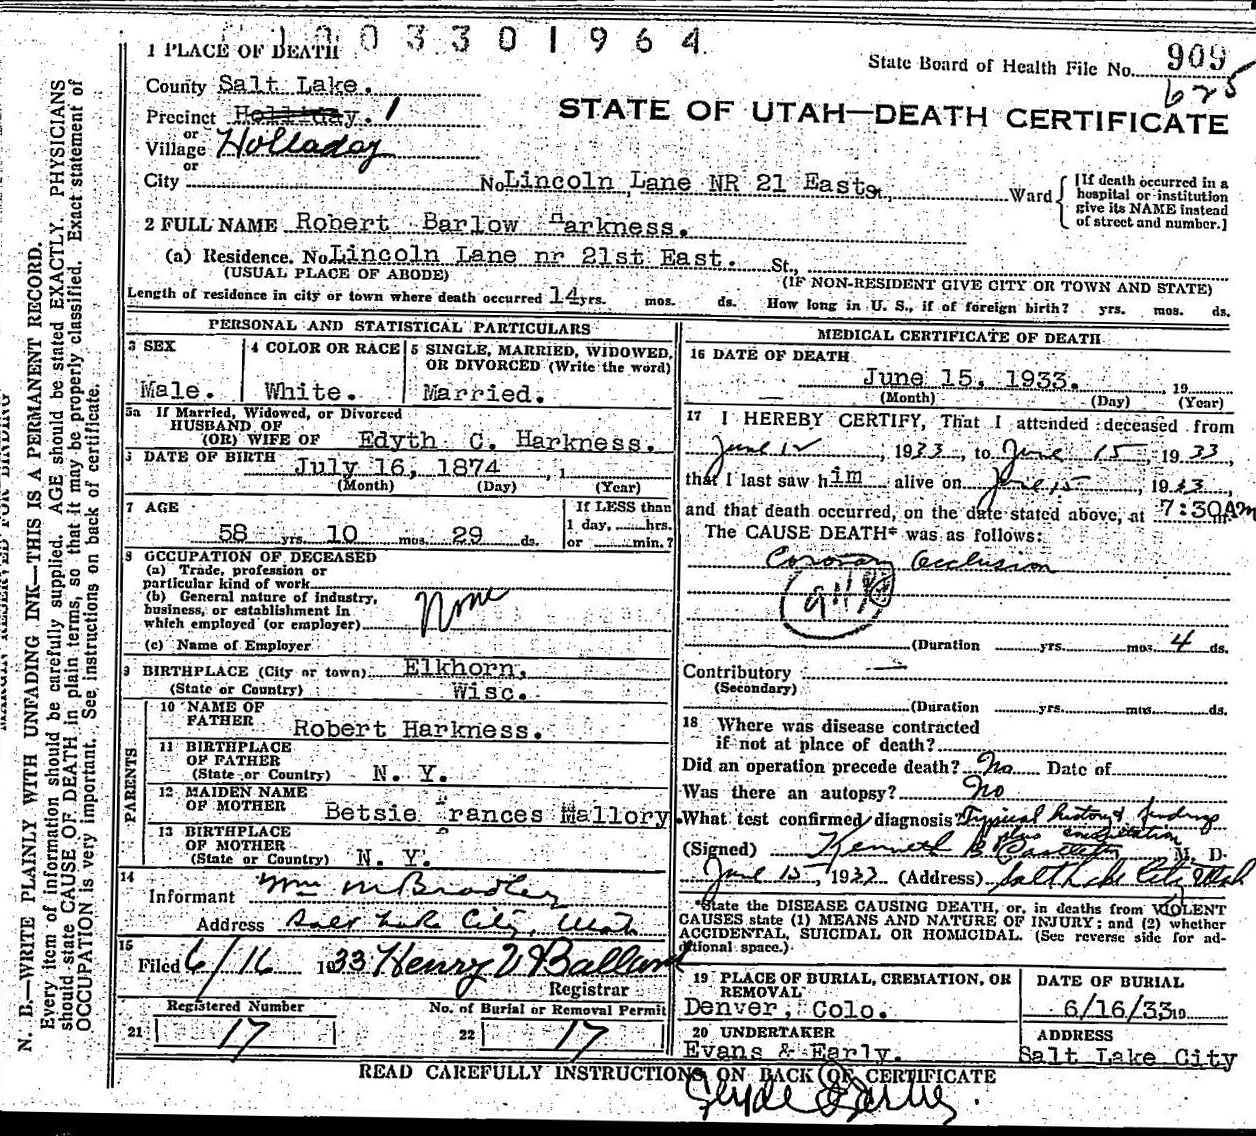 1003301964
1 PLACE OF DEATH
State Board of Health File No. 909
625
County Salt Lake.
STATE OF UTAH—DEATH CERTIFICATE
Precinct Holliday. 1
or
Village Holladay
or
City No. Lincoln Lane NR 21 East St., Ward
[If death occurred in a
hospital or institution
give its NAME instead
of street and number.]
2 FULL NAME Robert Barlow Harkness.
(a) Residence. No. Lincoln Lane nr 21st East. St.,
(USUAL PLACE OF ABODE) (IF NON-RESIDENT GIVE CITY OR TOWN AND STATE)
Length of residence in city or town where death occurred 14 yrs. mos. ds. How long in U. S., if of foreign birth? yrs. mos. ds.
PERSONAL AND STATISTICAL PARTICULARS
3 SEX
Male.
4 COLOR OR RACE
White.
5 SINGLE, MARRIED, WIDOWED,
OR DIVORCED (Write the word)
Married.
5a If Married, Widowed, or Divorced
HUSBAND OF
(OR) WIFE OF Edyth C. Harkness.
DATE OF BIRTH
July 16, 1874 , 1
(Month) (Day) (Year)
7 AGE
58 yrs. 10 mos. 29 ds.
If LESS than
1 day, hrs.
or min.?
8 OCCUPATION OF DECEASED
(a) Trade, profession or
particular kind of work
(b) General nature of industry,
business, or establishment in
which employed (or employer)
None
(c) Name of Employer
9 BIRTHPLACE (City or town) Elkhorn,
(State or Country) Wisc.
PARENTS
10 NAME OF
FATHER
Robert Harkness.
11 BIRTHPLACE
OF FATHER
(State or Country) N. Y.
12 MAIDEN NAME
OF MOTHER Betsie Frances Mallory.
13 BIRTHPLACE
OF MOTHER
(State or Country) N. Y.
14
Informant Wm M Bradley
Address Salt Lake City, Utah
15
Filed 6/16 1933 Henry V Ballard
Registrar
Registered Number
21 17
No. of Burial or Removal Permit
22 17
MEDICAL CERTIFICATE OF DEATH
16 DATE OF DEATH
June 15, 1933. 19
(Month) (Day) (Year)
17 I HEREBY CERTIFY, That I attended deceased from
June 12, 1933, to June 15, 1933,
that I last saw him alive on June 15, 1933,
and that death occurred, on the date stated above, at 7:30 AM
The CAUSE DEATH* was as follows:
Coronary Occlusion
(Duration yrs. mos. 4 ds.
Contributory —
(Secondary)
(Duration yrs. mos. ds.
18 Where was disease contracted
if not at place of death?
Did an operation precede death? No Date of
Was there an autopsy? No
What test confirmed diagnosis Typical history & findings
plus consultation
(Signed) Kenneth B Castleton M. D.
June 15, 1933 (Address) Salt Lake City Utah
*State the DISEASE CAUSING DEATH, or, in deaths from VIOLENT
CAUSES state (1) MEANS AND NATURE OF INJURY; and (2) whether
ACCIDENTAL, SUICIDAL OR HOMICIDAL. (See reverse side for ad-
ditional space.)
19 PLACE OF BURIAL, CREMATION, OR
REMOVAL
Denver, Colo.
DATE OF BURIAL
6/16/33 19
20 UNDERTAKER
Evans & Early.
ADDRESS
Salt Lake City
READ CAREFULLY INSTRUCTIONS ON BACK OF CERTIFICATE
MARGIN RESERVED FOR BINDING
N. B.—WRITE PLAINLY WITH UNFADING INK—THIS IS A PERMANENT RECORD.
Every item of information should be carefully supplied. AGE should be stated EXACTLY. PHYSICIANS
should state CAUSE OF DEATH in plain terms, so that it may be properly classified. Exact statement of
OCCUPATION is very important. See instructions on back of certificate.